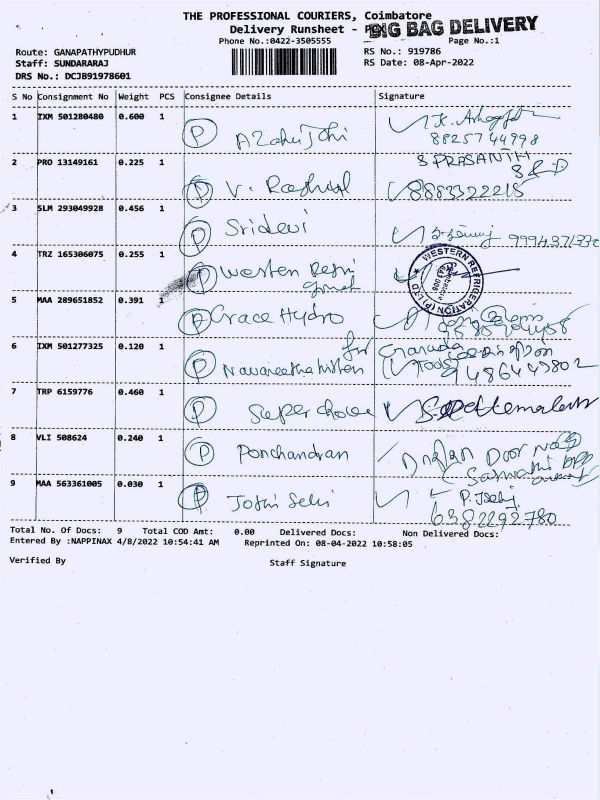 THE PROFESSIONAL COURIERS, Coimbatore
Delivery Runsheet - BIG BAG DELIVERY
Phone No.:0422-3505555 Page No.:1
Route: GANAPATHYPUDHUR RS No.: 919786
Staff: SUNDARARAJ RS Date: 08-Apr-2022
DRS No.: DCJB91978601
S No Consignment No Weight PCS Consignee Details Signature
1 IXM 501280480 0.600 1 P K.
8825744998
2 PRO 13149161 0.225 1 P V. S PRASANTH
8883322215
3 SLM 293049928 0.456 1 P Sridevi
4 TRZ 165306075 0.255 1 P Westen WESTERN REFRIGERATION (P) LTD
5 MAA 289651852 0.391 1 P Grace Hydro
6 IXM 501277325 0.120 1 P for Granada
Tools 9486449802
7 TRP 6159776 0.460 1 P Super
8 VLI 508624 0.240 1 P Ponchandran Door
9 MAA 563361005 0.030 1 P Jothi Selvi P.
6382292780
Total No. Of Docs: 9 Total COD Amt: 0.00 Delivered Docs: Non Delivered Docs:
Entered By :NAPPINAX 4/8/2022 10:54:41 AM Reprinted On: 08-04-2022 10:58:05
Verified By Staff Signature